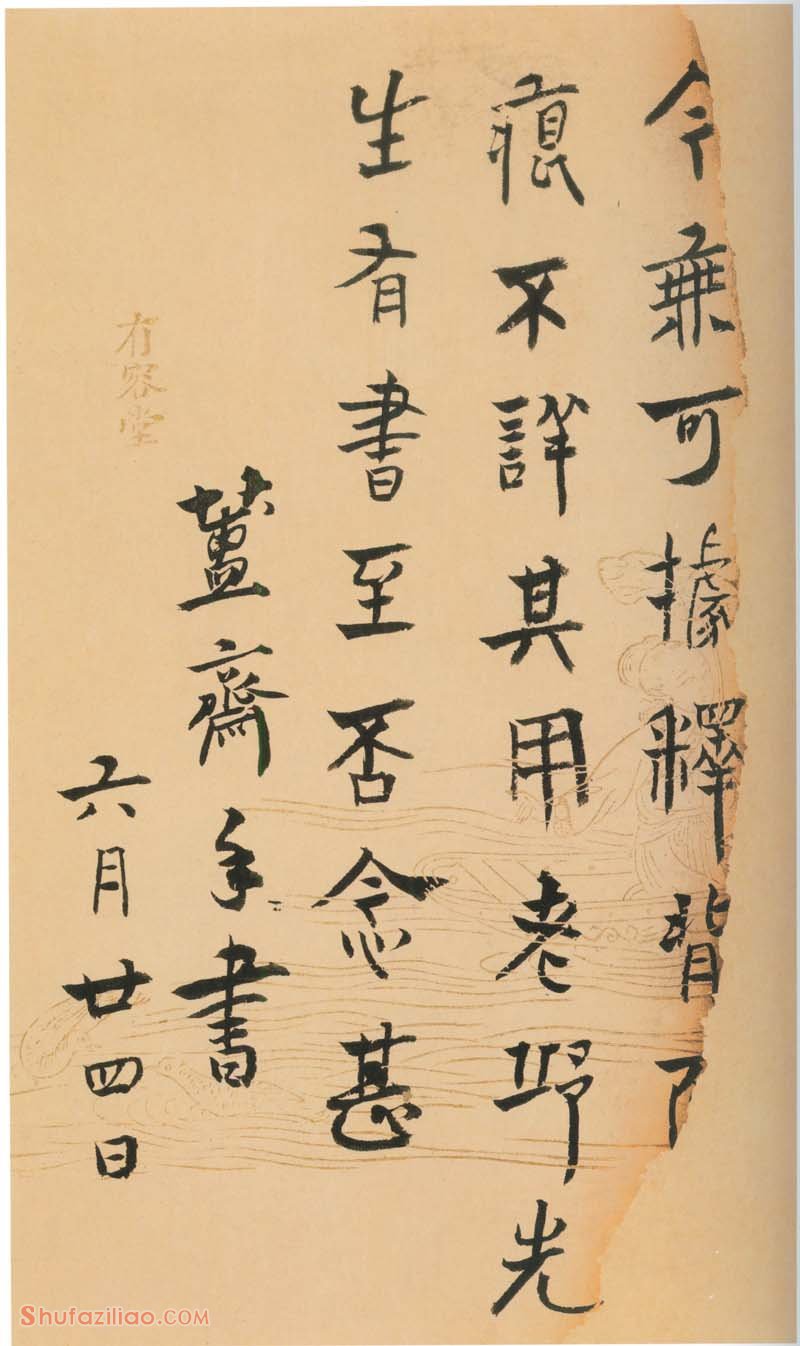 今無可據釋背
痕不詳其用老邱先
生有書至否念甚
簠齋手書
六月廿四日
有容堂
Shufaziliao.COM